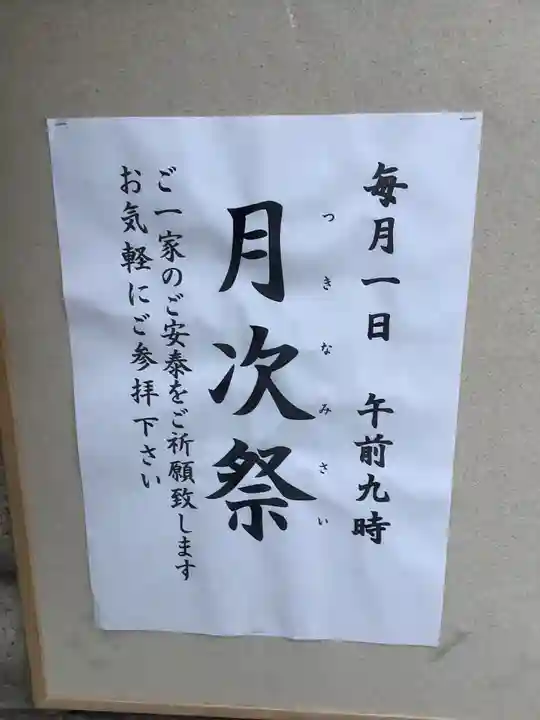 毎月一日 午前九時
つきなみさい
月次祭
ご一家のご安泰をご祈願致します
お気軽にご参拝下さい